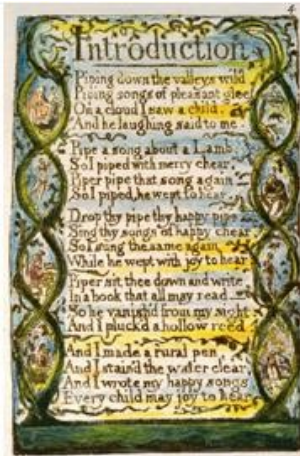 4
Introduction
Piping down the valleys wild
Piping songs of pleasant glee
On a cloud I saw a child.
And he laughing said to me.
Pipe a song about a Lamb;
So I piped with merry chear,
Piper pipe that song again—
So I piped, he wept to hear.
Drop thy pipe thy happy pipe
Sing thy songs of happy chear
So I sung the same again
While he wept with joy to hear
Piper sit thee down and write
In a book that all may read—
So he vanish'd from my sight
And I pluck'd a hollow reed.
And I made a rural pen,
And I stain'd the water clear,
And I wrote my happy songs
Every child may joy to hear